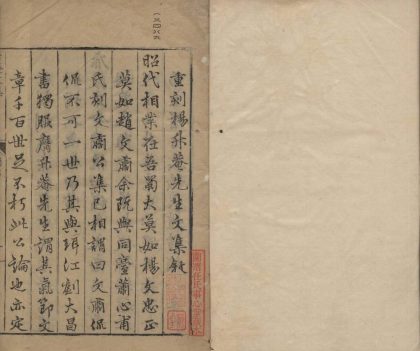 重刻楊升菴先生文集敘
昭代相業在吾蜀大莫如楊文忠正
莫如趙文肅余既與同臺蕭心甫
氏刻文肅公集已相謂曰文肅侃
侃不可一世乃其與珥江劉大昌
書獨服膺升菴先生謂其氣節文
章千百世足不朽此公論也亦定